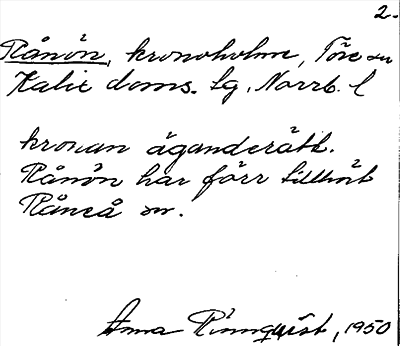 2.
Rånön, kronoholme, Töre sn
Kalix doms. lg, Norrb. l
kronan äganderätt.
Rånön har förr tillhört
Råneå sn.
Anna Rönnqvist, 1950